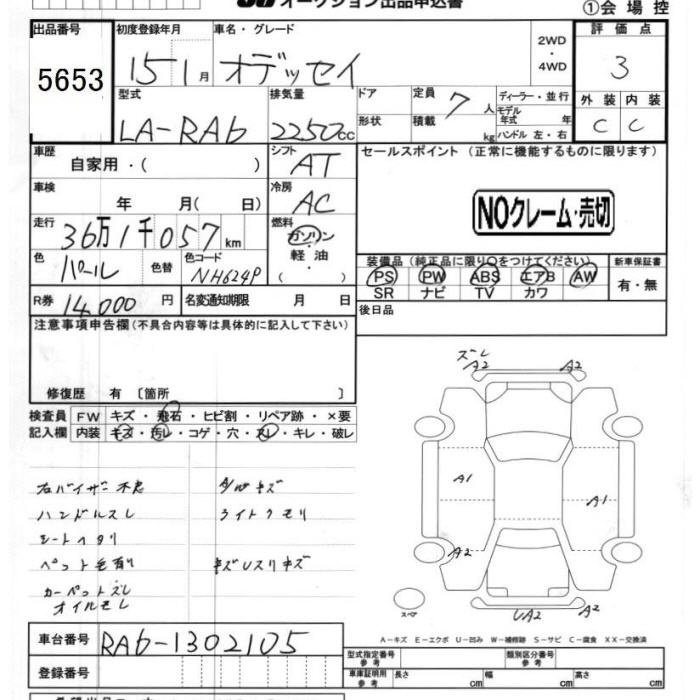 オークション出品申込書
①会場控
出品番号 初度登録年月 車名・グレード 2WD・4WD 評価点
5653 15 1月 オデッセイ 3
型式 排気量 ドア 定員 7人 ディーラー・並行 外装 内装
LA-RA6 2250cc 形状 積載 kg モデル年式 年 ハンドル 左・右 C C
車歴 シフト セールスポイント(正常に機能するものに限ります)
自家用・( ) AT
車検 冷房
年 月( 日) AC NOクレーム・売切
走行 燃料
36万1千057km ガソリン・軽油・( )
色 パール 色替 色コード NH624P
装備品(純正品に限り○をつけてください) 新車保証書
PS PW ABS エアB AW 有・無
SR ナビ TV カワ
R券 14,000円 名変通知期限 月 日 後日品
注意事項申告欄(不具合内容等は具体的に記入して下さい)
修復歴 有 〔箇所 〕
検査員 FW キズ・飛石・ヒビ割・リペア跡・×要
記入欄 内装 キズ・汚レ・コゲ・穴・スレ・キレ・破レ
右バイザー不良
ハンドルスレ ライトクモリ
シートヘタリ
ペット毛有リ
カーペットズレ
オイルモレ
ズレ
A2 A2
A1
A1
A2
スペア UA2 A2
A-キズ E-エクボ U-凹み W-補修跡 S-サビ C-腐食 XX-交換済
車台番号 RA6-1302105
登録番号
型式指定番号 参考 類別区分番号 参考
車庫証明用 参考 長さ cm 幅 cm 高さ cm